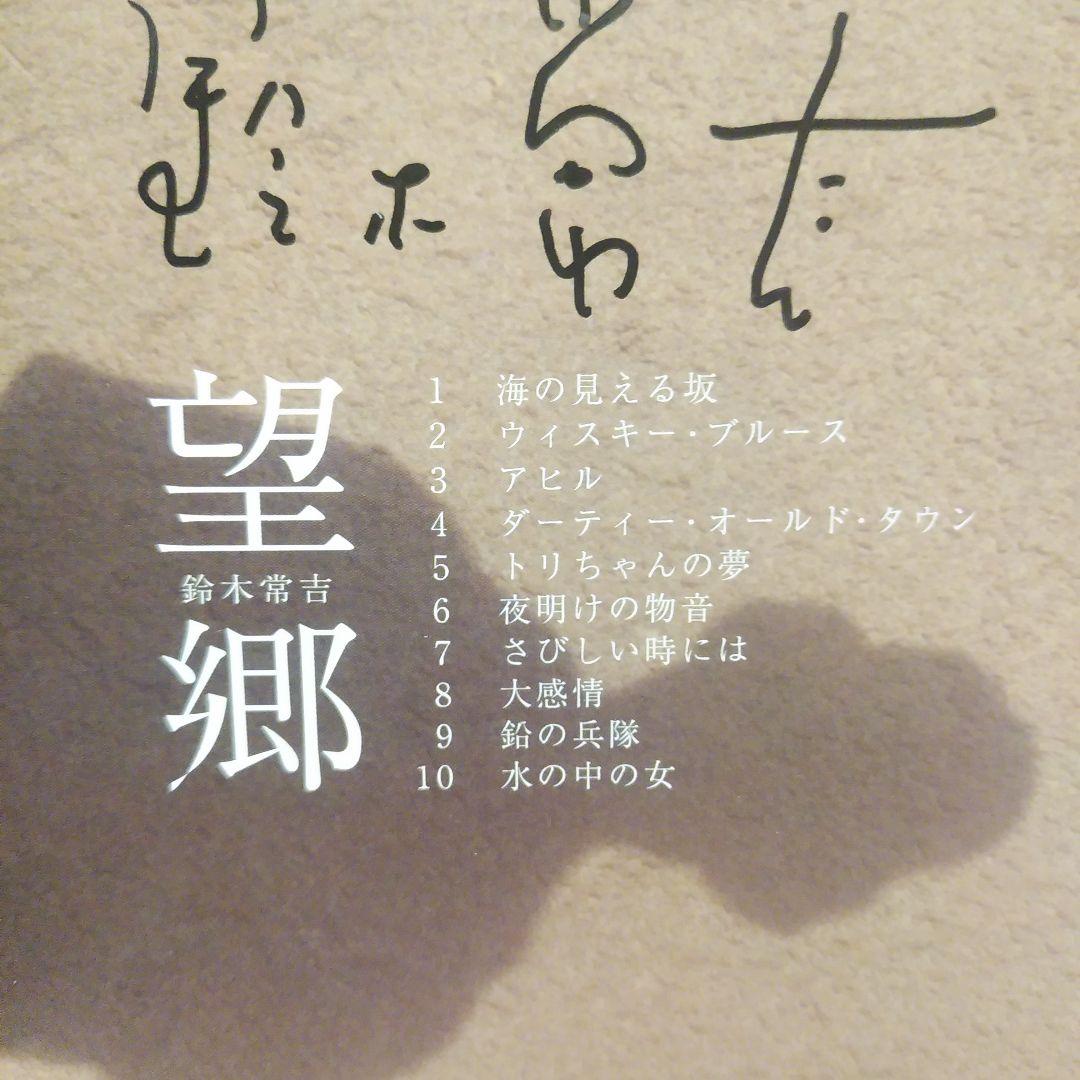 鈴木常吉
望郷
鈴木常吉
1 海の見える坂
2 ウィスキー・ブルース
3 アヒル
4 ダーティー・オールド・タウン
5 トリちゃんの夢
6 夜明けの物音
7 さびしい時には
8 大感情
9 鉛の兵隊
10 水の中の女